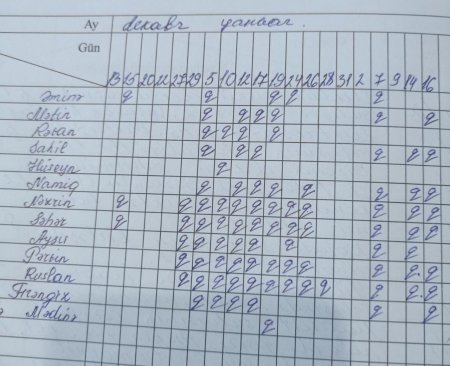 Ay декабр январ.
Gün
13 15 20 22 27 29 5 10 12 17 19 24 26 28 31 2 7 9 14 16
Əminə q q q q q
Mətin q q q q q q
Rəvan q q q q
Sahil q q q q q q
Hüseyn q
Namiq q q q q q q q q
Nəzrin q q q q q q q q q q q q
Səhər q q q q q q q q q q q q
Aysu q q q q q q q q
Pərvin q q q q q q q q q q q
Ruslan q q q q q q q q q q q q
Frəngiz q q q q q q q
Mədinə q q q